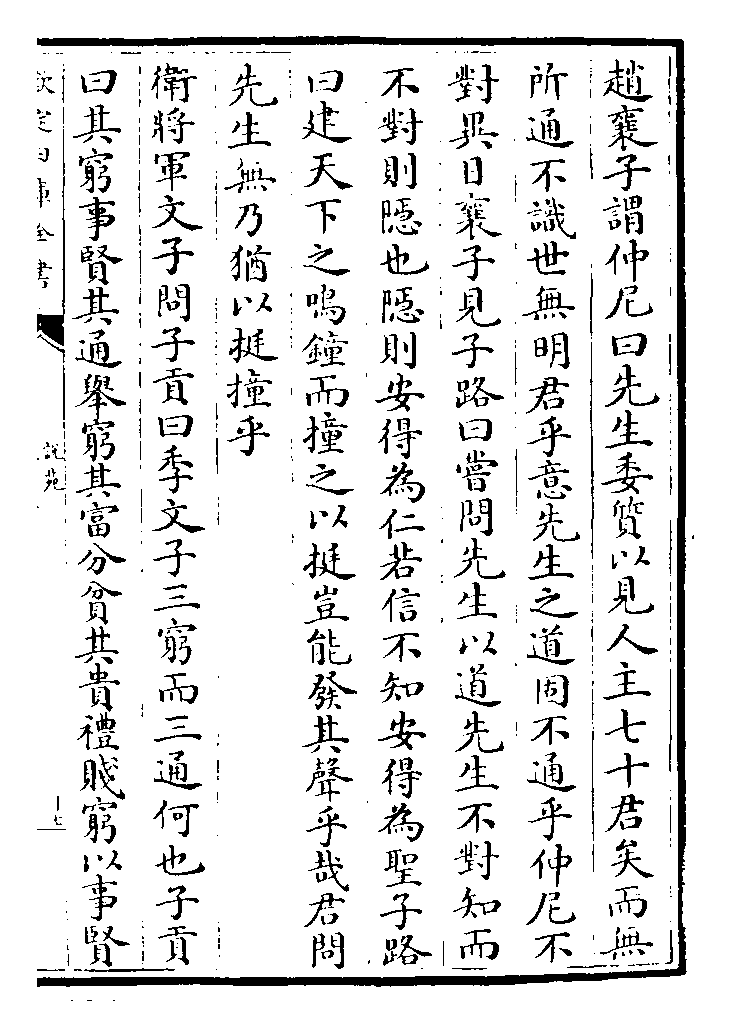 趙襄子謂仲尼曰先生委質以見人主七十君矣而無
所通不識世無明君乎意先生之道固不通乎仲尼不
對異日襄子見子路曰嘗問先生以道先生不對知而
不對則隱也隱則安得為仁若信不知安得為聖子路
曰建天下之鳴鐘而撞之以挺豈能發其聲乎哉君問
先生無乃猶以挺撞乎
衛將軍文子問子貢曰季文子三窮而三通何也子貢
曰其窮事賢其通舉窮其富分貧其貴禮賤窮以事賢
欽定四庫全書
說苑
十七